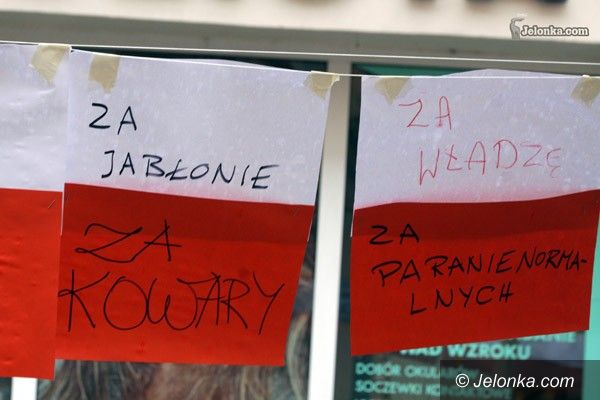 Jelonka.com
ZA
JABŁONIE
ZA
KOWARY
ZA
WŁADZĘ
ZA
PARANIENORMA-
LNYCH
WAD WZROKU
DOBÓR OKULARÓW
SOCZEWKI KONTAKTOWE
© Jelonka.com